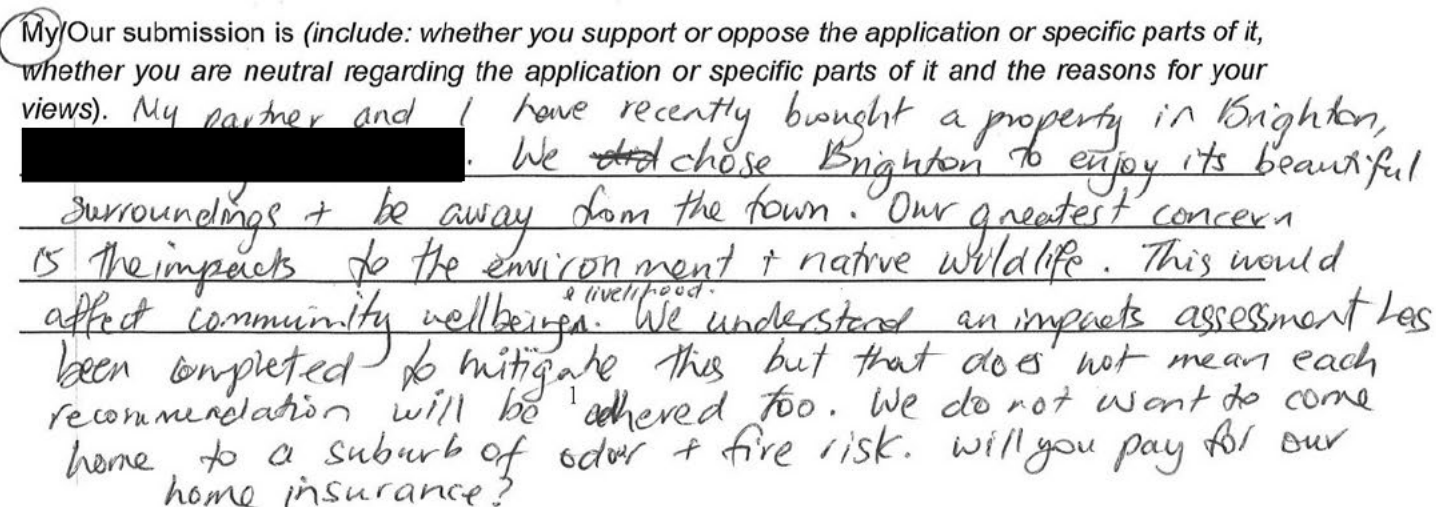 My/Our submission is (include: whether you support or oppose the application or specific parts of it,
whether you are neutral regarding the application or specific parts of it and the reasons for your
views). My partner and I have recently bought a property in Brighton,
. We did chose Brighton to enjoy its beautiful
surroundings + be away from the town. Our greatest concern
is the impacts to the environment + native wildlife. This would
& livelihood.
affect community wellbeing. We understand an impacts assessment has
been completed to mitigate this but that does not mean each
recommendation will be adhered too. We do not want to come
home to a suburb of odour + fire risk. will you pay for our
home insurance?